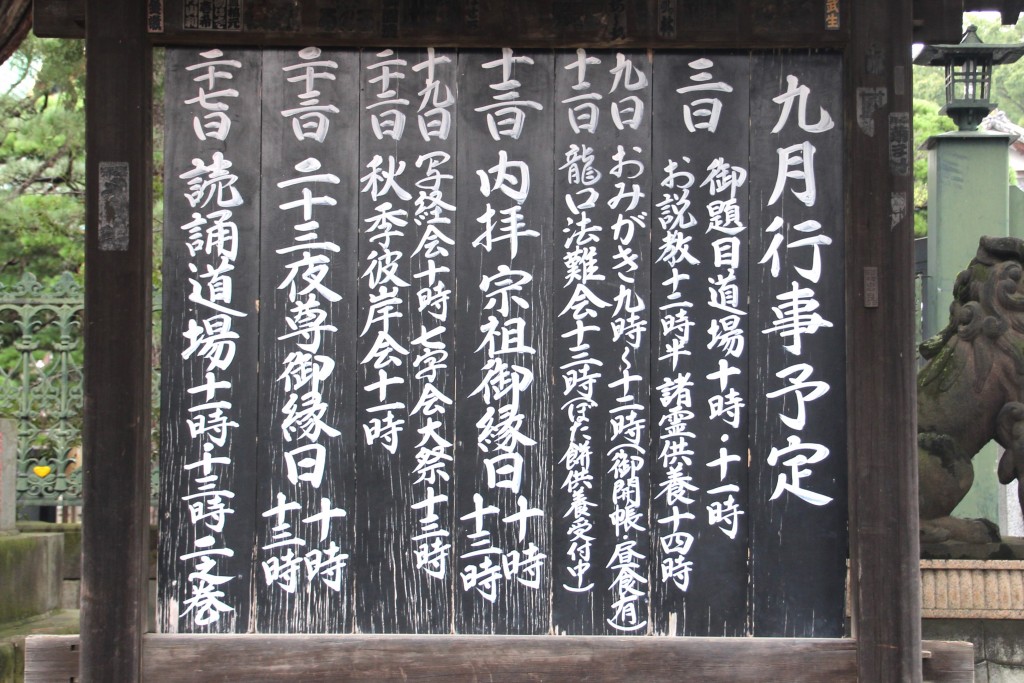 九月行事予定
三日 御題目道場十時・十一時
お説教十二時半 諸霊供養十四時
九日 おみがき九時〜十二時(御開帳・昼食有)
十二日 龍口法難会十三時(ぼた餅供養受付中)
十三日 内拝宗祖御縁日 十時
十三時
十九日 写経会十時七字会大祭十三時
二十二日 秋季彼岸会十一時
二十三日 二十三夜尊御縁日 十時
十三時
二十七日 読誦道場十一時・十三時 二之巻
武生